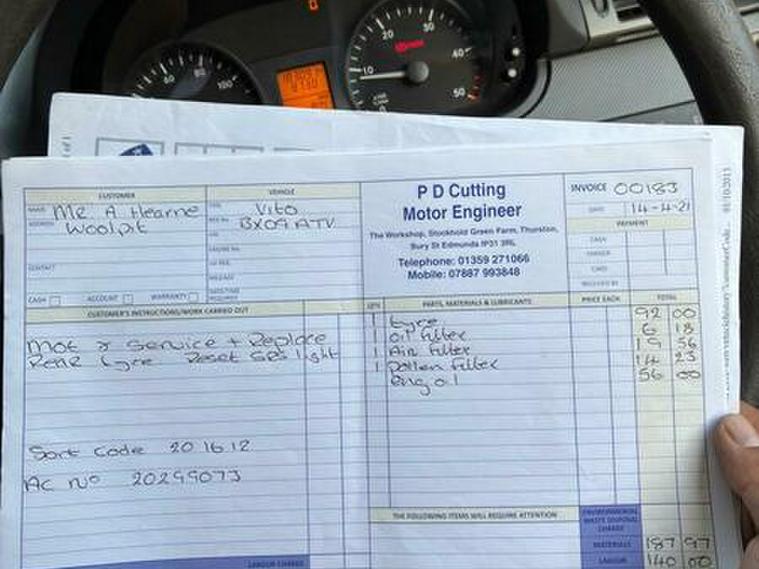 60 80 100
10 20 30 40 50
CUSTOMER
VEHICLE
NAME Mr A Hearne
ADDRESS Woolpit
Vito
BX09 ATV
P D Cutting
Motor Engineer
The Workshop, Stockhold Green Farm, Thurston,
Bury St Edmunds IP31 3RL
Telephone: 01359 271066
Mobile: 07887 993848
INVOICE 00183
DATE 14-4-21
PAYMENT
CASH
CARD
CONTACT
MILEAGE
CASH ACCOUNT WARRANTY
CUSTOMER'S INSTRUCTIONS/WORK CARRIED OUT
QTY PARTS, MATERIALS & LUBRICANTS PRICE EACH TOTAL
1 tyre 92 00
1 oil filter 6 18
1 Air filter 19 56
1 Pollen filter 14 23
eng oil 56 00
Mot & Service + Replace
Rear tyre Reset SRS light
Sort Code 20 16 12
Ac No 20299073
THE FOLLOWING ITEMS WILL REQUIRE ATTENTION
ENVIRONMENTAL
WASTE DISPOSAL
CHARGE
MATERIALS 187 97
LABOUR 140 00
LABOUR CHARGE
01/10/2013